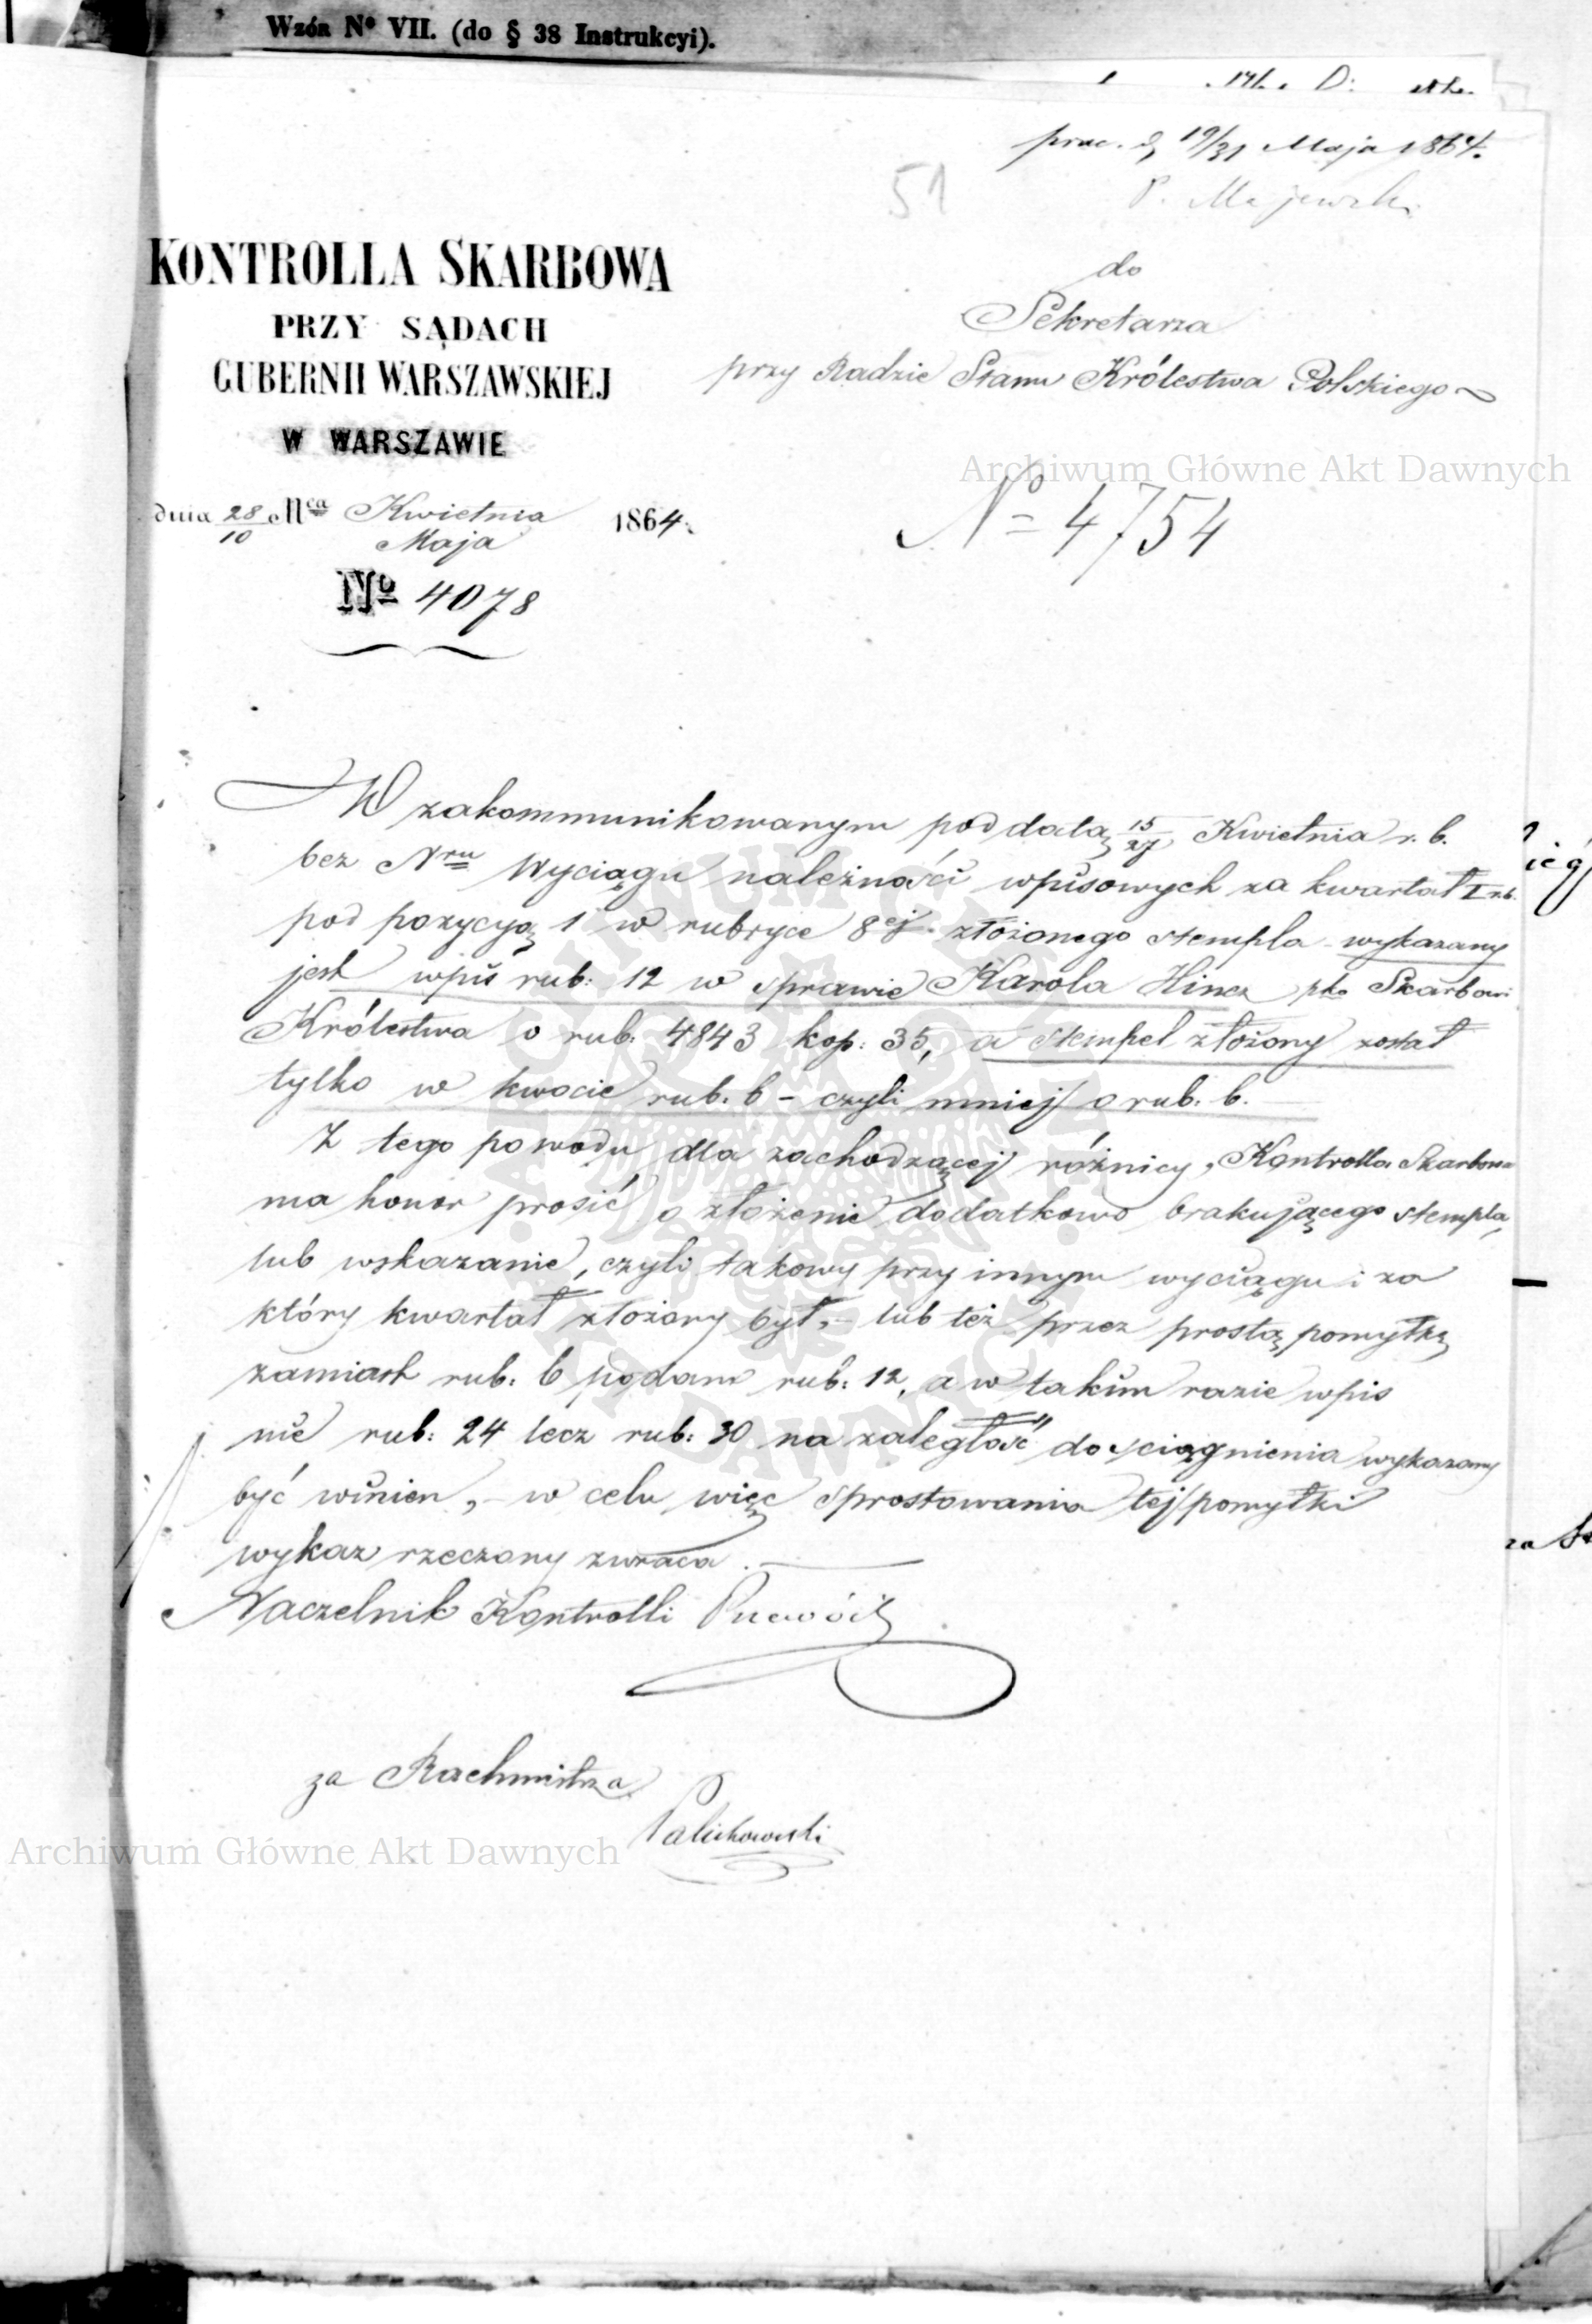 Wzór Nº VII. (do § 38 Instrukcyi).
prac. d. 19/31 Maja 1864.
51
P. Majewski
KONTROLLA SKARBOWA
PRZY SĄDACH
GUBERNII WARSZAWSKIEJ
W WARSZAWIE
dnia 28/10 Mca Kwietnia/Maja 1864.
Nº 4078
do
Sekretarza
przy Radzie Stanu Królestwa Polskiego
Archiwum Główne Akt Dawnych
Nº 4754
W zakommunikowanym pod datą 15/27 Kwietnia r. b.
bez Nru Wyciągu należności wpisowych za kwartał I r.b.
pod pozycyą 1 w rubryce 8ej złożonego stempla wykazany
jest wpis rub: 12 w sprawie Karola Hincz pko Skarbowi
Królestwa o rub. 4843 kop: 35, a stempel złożony został
tylko w kwocie rub. 6 - czyli mniej o rub. 6.
Z tego powodu dla zachodzącej różnicy, Kontrolla Skarbowa
ma honor prosić o złożenie dodatkowo brakującego stempla,
lub wskazanie, czyli takowy przy innym wyciągu i za
który kwartał złożony był, - lub też przez prostą pomyłkę
zamiast rub: 6 podano rub: 12, a w takim razie wpis
nie rub: 24 lecz rub: 30 na zaległość do ściągnienia wykazany
być winien, - w celu więc sprostowania tej pomyłki
wykaz rzeczony zwraca.
Naczelnik Kontrolli
za Rachmistrza
Archiwum Główne Akt Dawnych
ARCHIWUM GŁÓWNE AKT DAWNYCH